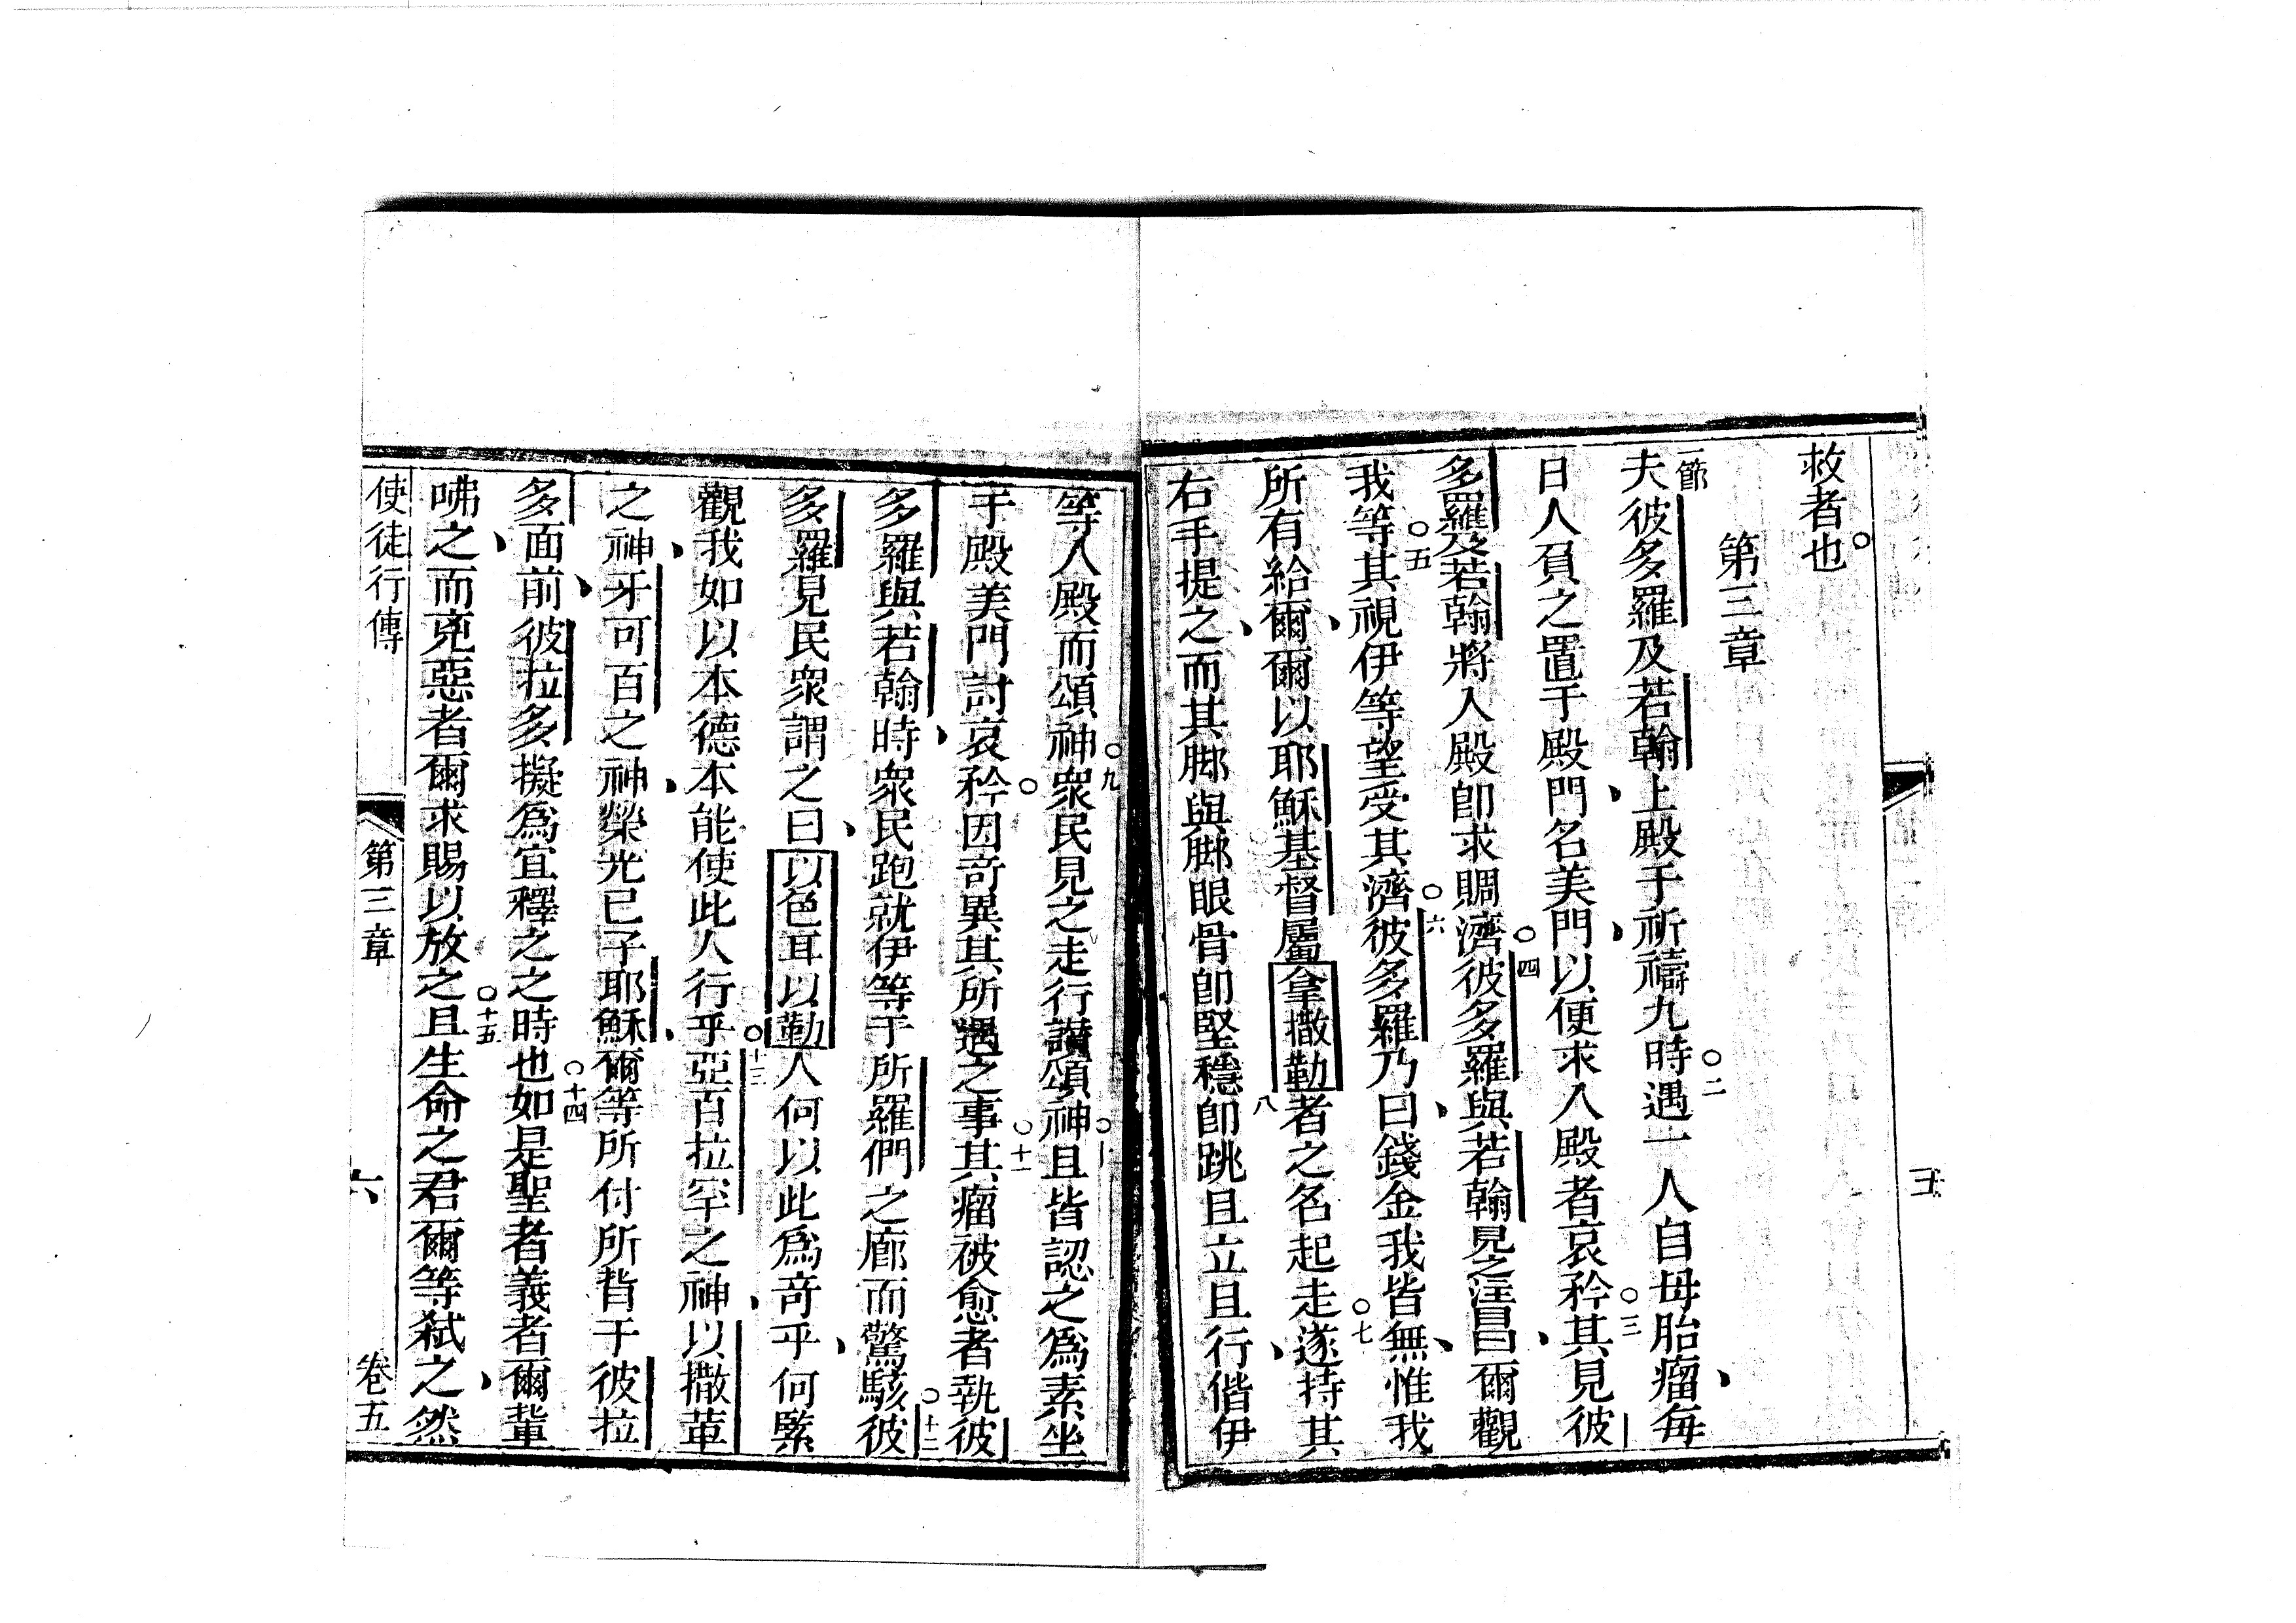 救者也。
第三章
一節夫彼多羅及若翰上殿于祈禱九時○二遇一人自母胎瘤、每
日人負之置于殿門、名美門、以便求入殿者哀矜○三其見彼
多羅及若翰將入殿卽求賙濟○四彼多羅與若翰見之注目曰、爾觀
我等○五其視伊等望受其濟○六彼多羅乃曰、錢金我皆無、惟我
所有給爾、爾以耶穌基督屬拿撒勒者之名起走○七遂持其
右手提之、而其脚與脚眼骨卽堅穩八卽跳且立且行、偕伊
等入殿而頌神○九衆民見之走行讚頌神○十且皆認之爲素坐
于殿美門討哀矜○因奇異其所遇之事○十一其瘤被愈者執彼
多羅與若翰時、衆民跑就伊等于所羅們之廊而驚駭○十二彼
多羅見民衆謂之曰、以色耳以勒人何以此爲奇乎、何緊
觀我、如以本德本能使此人行乎○十三亞百拉罕之神、以撒革
之神、牙可百之神、榮光已子耶穌、爾等所付所背于彼拉
多面前、彼拉多擬爲宜釋之之時也○十四如是聖者義者爾輩
咈之、而兇惡者爾求賜以放之○十五且生命之君爾等弒之、然
使徒行傳
第三章
六
卷五